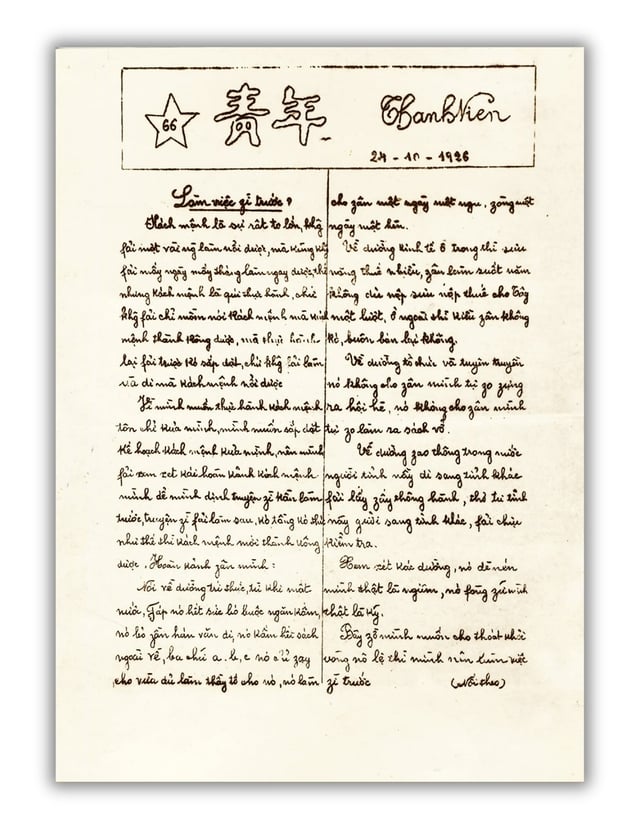 66
青年
Thanh Niên
24-10-1926
Làm việc gì trước?
Kách mệnh là sự rất to lớn, khg
fải một vài ng làm nổi được, mà kũng khg
fải mấy ngày mấy tháng làm ngay được, thế
nhưng kách mệnh là qúi thực hành, chứ
khg fải chỉ mồm nói kách mệnh mà kách
mệnh thành kông được, mà thực hành
lại fải trước kó sắp đặt, chứ khg fải làm
và đi mà kách mệnh nổi được
Vì mình muốn thực hành kách mệnh
tôn chỉ kủa mình, mình muốn sắp đặt
kế hoạch kách mệnh kủa mình, nên mình
fải xem xét kái hoàn kảnh kách mệnh
mình để mình định truyện zì kần làm
trước, truyện zì fải làm sau, kó tầng kó thứ
như thế thì kách mệnh mới thành kông
được. Hoàn kảnh zân mình:
Nói về đường trí thức, từ khi mất
nước, Fáp nó hết sức bó buộc ngăn kấm,
nó bỏ zần hán văn đi, nó kấm hết sách
ngoài về, ba chữ a.b.c nó cứ zạy
cho vừa đủ làm thầy tớ cho nó, nó làm
cho zân một ngày một ngu, zống một
ngày một hèn.
Về đường kinh tế ở trong thì sưu
nặng thuế nhiều, zân làm suốt năm
không đủ nộp sưu nộp thuế cho Tây
một lượt, ở ngoài thì kiều zân không
kó, buôn bán lại không.
Về đường tổ chức và tuyên truyền
nó không cho zân mình tự zo zựng
ra hội hè, nó không cho zân mình
tự zo làm ra sách vở.
Về đường zao thông trong nước
người tỉnh nầy đi sang tỉnh khác
fải lấy zấy thông hành, thơ từ tỉnh
nầy gưởi sang tỉnh khác, fải chịu
kiểm tra.
Xem xét kác đường, nó đè nén
mình thật là ngiêm, nó fòng zữ mình
thật là kỹ.
Bây zờ mình muốn cho thoát khỏi
vòng nô lệ thì mình nên làm việc
zì trước
(Nối theo)